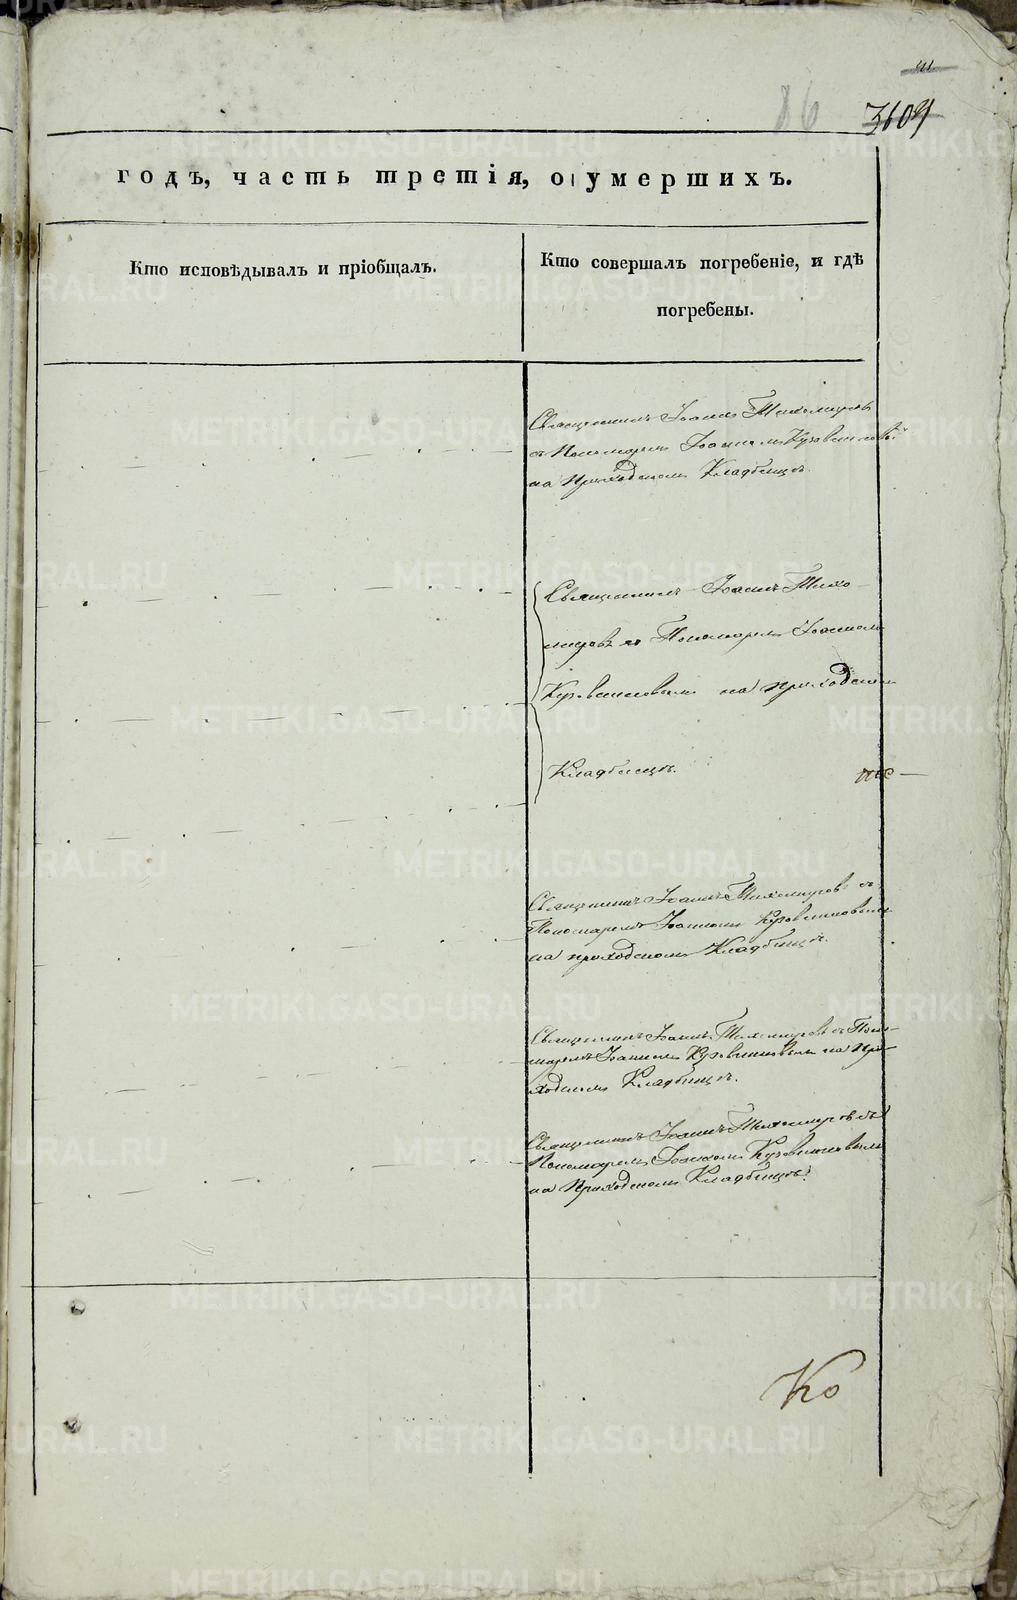 86
3609
годъ, часть третія, о умершихъ.
Кто исповѣдывалъ и пріобщалъ.
Кто совершалъ погребеніе, и гдѣ
погребены.
Священникъ Іоаннъ Тихомировъ
съ Пономаремъ Іоанномъ
на Приходскомъ Кладбищѣ.
Священникъ Іоаннъ Тихо-
мировъ съ Пономаремъ Іоанномъ
на приходскомъ
Кладбищѣ.
Священникъ Іоаннъ Тихомировъ съ
Пономаремъ Іоанномъ
на приходскомъ Кладбищѣ.
Священникъ Іоаннъ Тихомировъ съ Поно-
маремъ Іоанномъ на При-
ходскомъ Кладбищѣ.
Священникъ Іоаннъ Тихомировъ съ
Пономаремъ Іоанномъ
на Приходскомъ Кладбищѣ.
Ко
METRIKI.GASO-URAL.RU